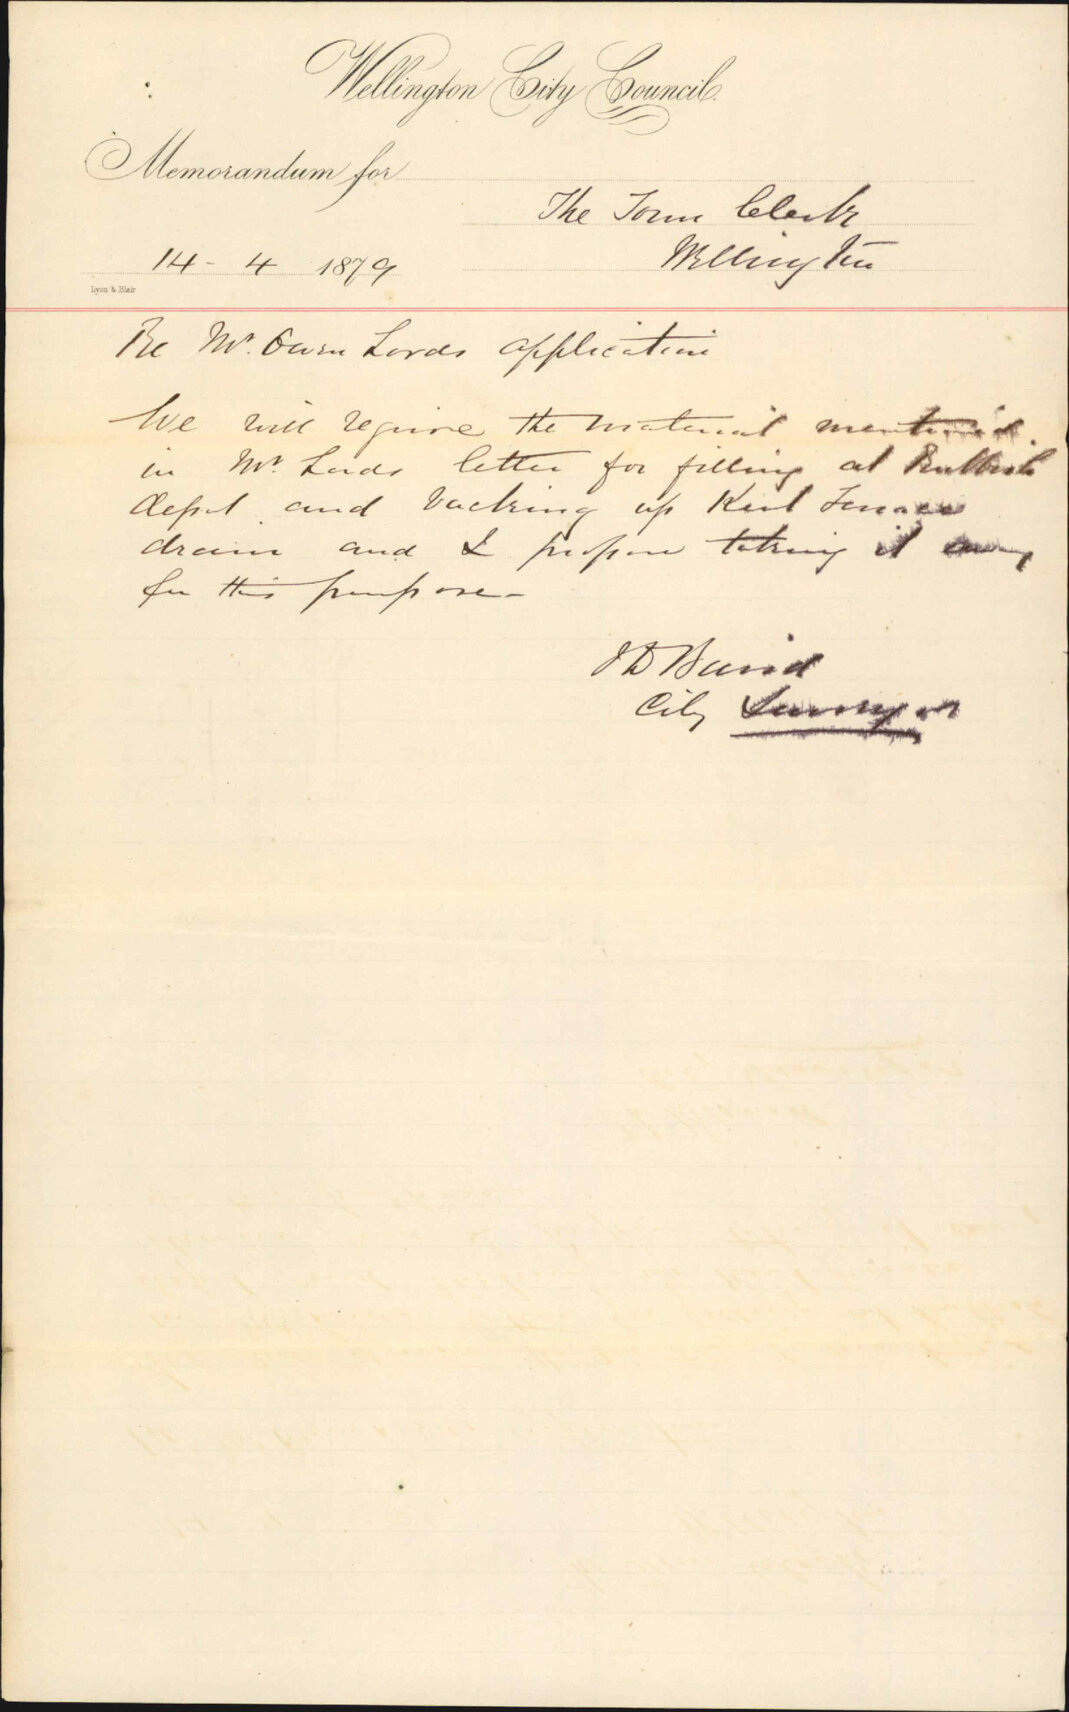 Wellington City Council.
Memorandum for
The Town Clerk
Wellington
14 - 4 1879
Lyon & Blair
Re Mr. Owen Lords application
We will require the material mentioned
in Mr Lords letter for filling at Rubbish
depot and backing up Kent Terrace
drain and I propose taking it away
for this purpose -
J D Baird
City Surveyor